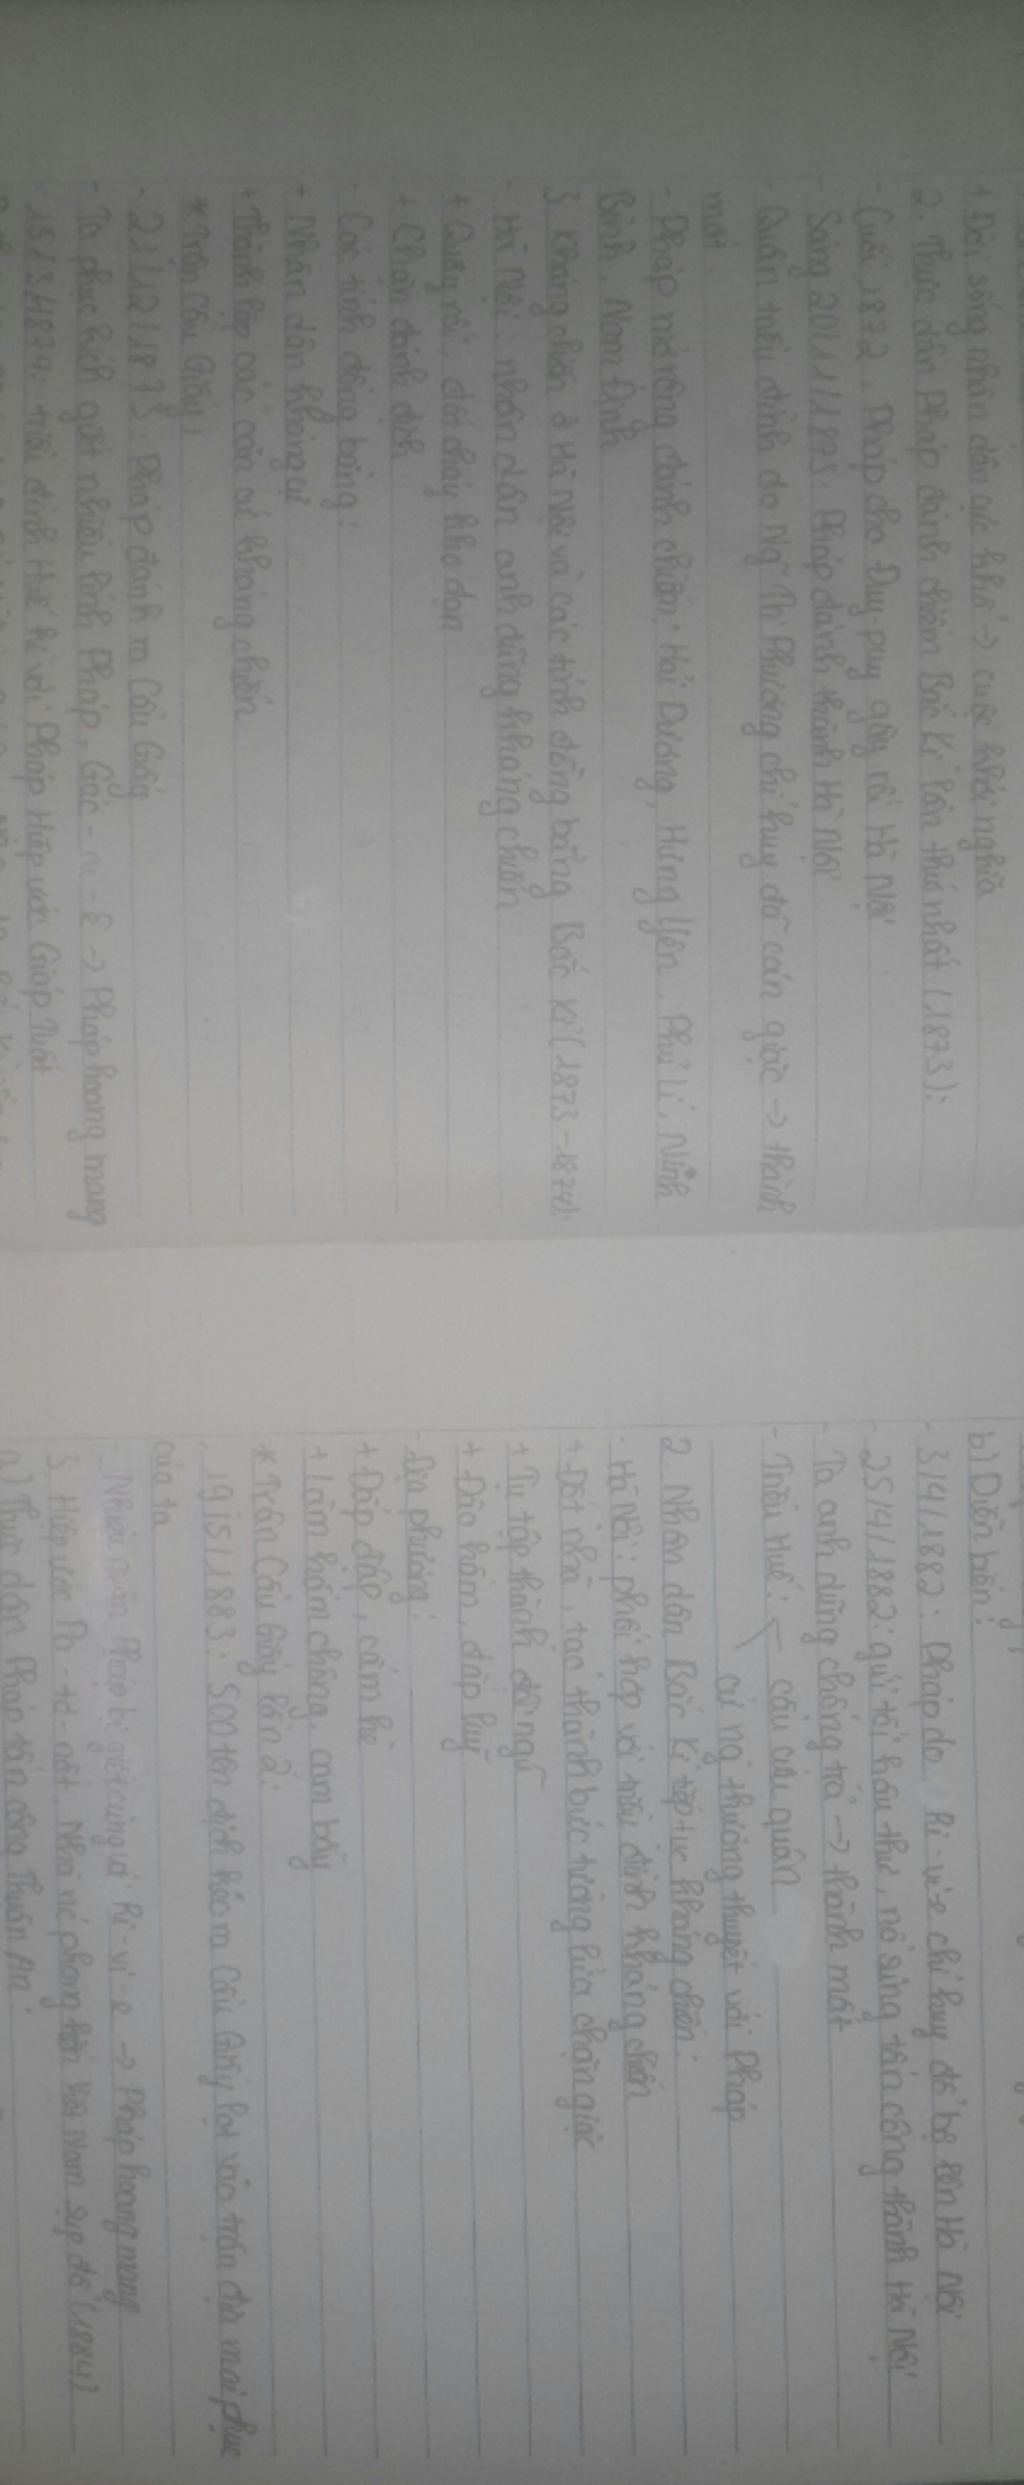 + Đời sống nhân dân cực khổ -> cuộc khởi nghĩa
2. Thực dân Pháp đánh chiếm Bắc Kì lần thứ nhất (1873):
- Cuối 1872, Pháp cho Đuy-puy gây rối Hà Nội
- Sáng 20/11/1873: Pháp đánh thành Hà Nội
- Quân triều đình do Ng~ Tri Phương chỉ huy đã cản giặc -> thành
mất.
- Pháp mở rộng đánh chiếm: Hải Dương, Hưng Yên, Phủ Lí, Ninh
Bình, Nam Định
3. Kháng chiến ở Hà Nội và các tỉnh đồng bằng Bắc Kì (1873-1874):
- Hà Nội: nhân dân anh dũng kháng chiến
+ Quấy rối, đốt cháy kho đạn
+ Chặn đánh địch
- Các tỉnh đồng bằng:
+ Nhân dân kháng cự
+ Thành lập các căn cứ kháng chiến
* Trận Cầu Giấy:
- 21/12/1873: Pháp đánh ra Cầu Giấy
- Ta phục kích giết nhiều lính Pháp, Gác-ni-ê -> Pháp hoang mang
- 15/3/1874: triều đình Huế kí với Pháp Hiệp ước Giáp Tuất
b) Diễn biến:
- 3/4/1882: Pháp do Ri-vi-e chỉ huy đổ bộ lên Hà Nội
- 25/4/1882: gửi tối hậu thư, nổ súng tấn công thành Hà Nội
- Ta anh dũng chống trả -> thành mất
- Triều Huế: cầu cứu quân
cử ng thương thuyết với Pháp
2. Nhân dân Bắc Kì tiếp tục kháng chiến:
- Hà Nội: phối hợp với triều đình kháng chiến
+ Đốt nhà, tạo thành bức tường lửa chặn giặc
+ Tụ tập thành đội ngũ
+ Đào hầm, đắp luỹ
- Địa phương:
+ Đắp đập, cắm kè
+ Làm hầm chông, cạm bẫy
* Trận Cầu Giấy lần 2:
- 19/5/1883: 500 tên địch kéo ra Cầu Giấy lọt vào trận địa mai phục
của ta
- Nhiều quân Pháp bị giết cùng Ri-vi-e -> Pháp hoang mang
3. Hiệp ước Pa-tơ-nốt. Nhà nc phong kiến Việt Nam sụp đổ (1884)
a) Thực dân Pháp tấn công Thuận An: